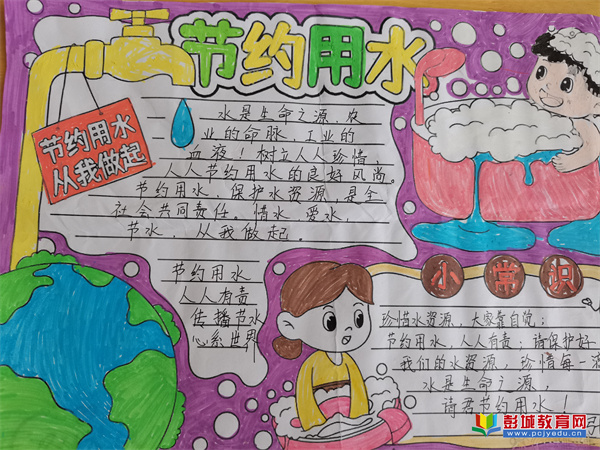 节约用水
节约用水
从我做起
水是生命之源,农
业的命脉,工业的
血液!树立人人珍惜,
人人节约用水的良好风尚。
节约用水,保护水资源,是全
社会共同责任。惜水、爱水,
节水,从我做起。
节约用水
人人有责
传播节水
心系世界
小常识
珍惜水资源,大家靠自觉;
节约用水,人人有责;请保护好
我们的水资源,珍惜每一滴
水是生命之源,
请君节约用水!
彭城教育网
www.pcjyedu.cn